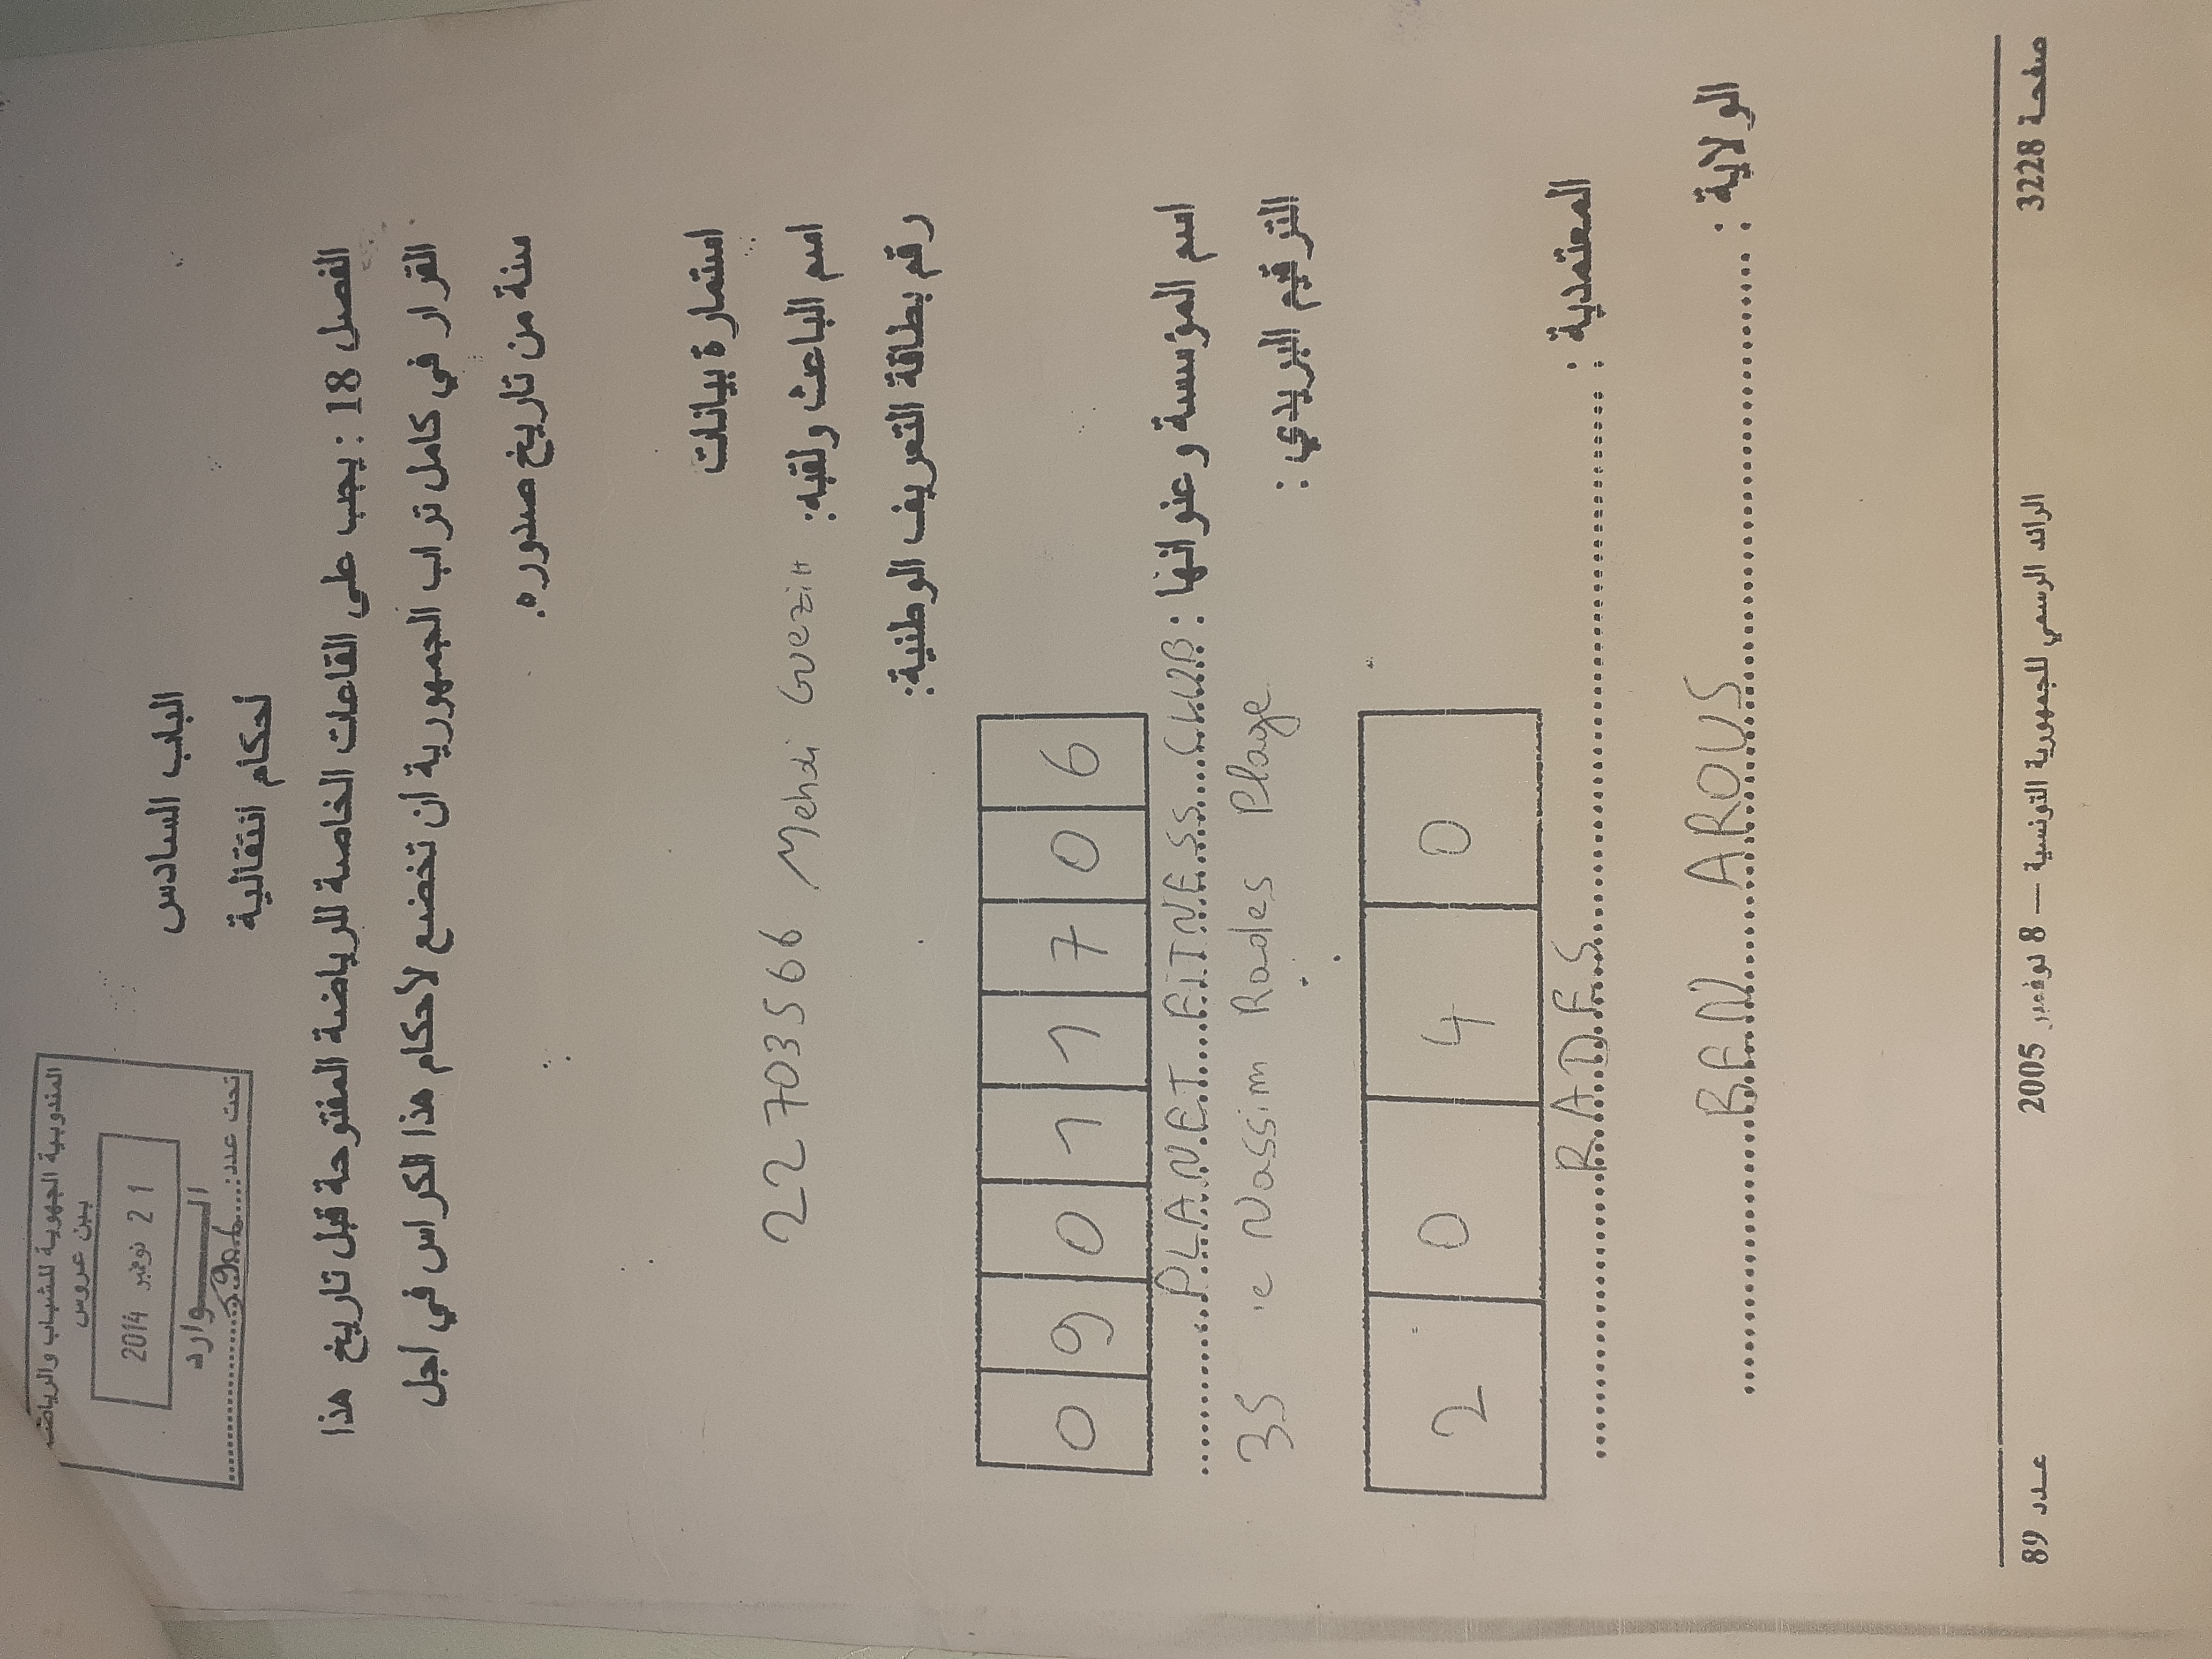 المندوبية الجهوية للشباب والرياضة
ببن عروس
21 نوفمبر 2014
الـــوارد
تحت عدد:
الباب السادس
أحكام انتقالية
الفصل 18 : يجب على القاعات الخاصة للرياضة المفتوحة قبل تاريخ هذا
القرار في كامل تراب الجمهورية أن تخضع لأحكام هذا الكراس في أجل
سنة من تاريخ صدوره.
استمارة بيانات
اسم الباعث ولقبه: Mehdi Guezih 22703566
رقم بطاقة التعريف الوطنية:
0 9 0 1 1 7 0 6
اسم المؤسسة وعنوانها : PLANET FITNESS CLUB
35 Nassim Rades Plage
الترقيم البريدي :
2 0 4 0
المعتمدية : RADES
الولاية : BEN AROUS
صفحة 3228 الرائد الرسمي للجمهورية التونسية — 8 نوفمبر 2005 عـدد 89